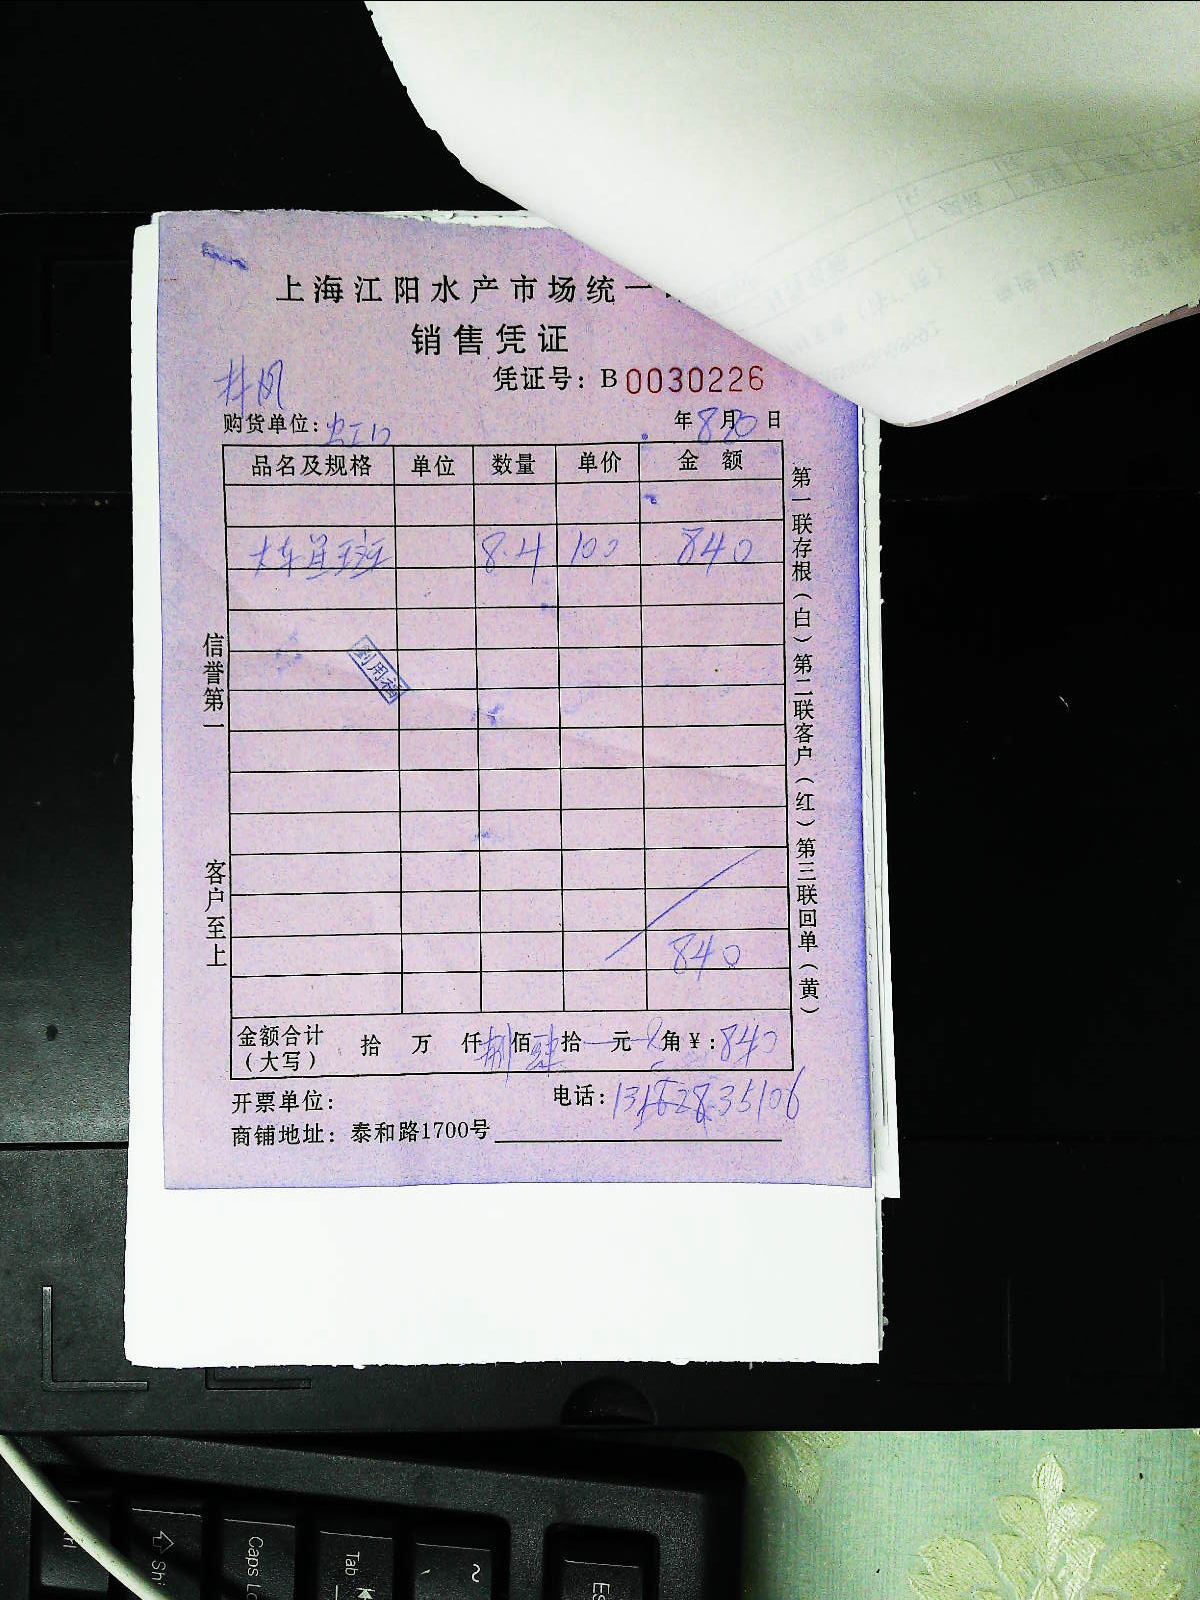 上海江阳水产市场统一
销售凭证
凭证号：B 0030226
购货单位：虹口
年8月20日
品名及规格 单位 数量 单价 金额
8.4 100 840
刘用福
840
金额合计（大写） 拾 万 仟捌佰肆拾 元 角￥：840
开票单位：
电话：
商铺地址：泰和路1700号
信誉第一 客户至上
第一联存根（白）第二联客户（红）第三联回单（黄）
Caps Lo
Tab
Shi
Es